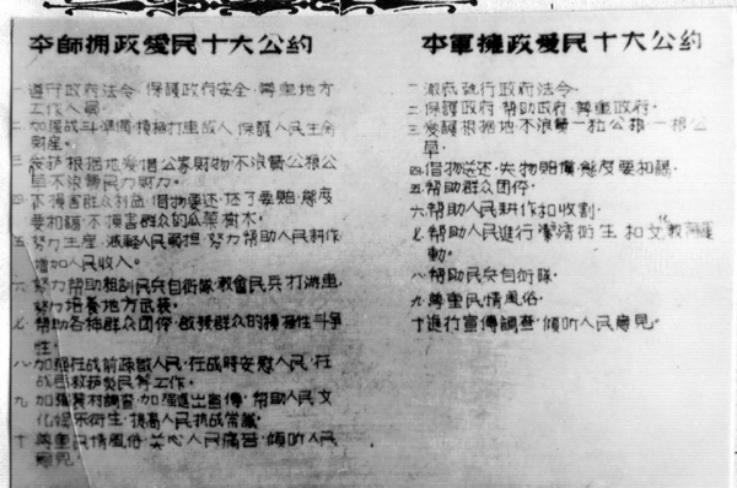 本師拥政愛民十大公约
一 遵守政府法令·保護政府安全·尊重地方
工作人員·
二 加强战斗準備·積極打击敌人·保護人民生命
財産·
三 爱护根据地·爱惜公家財物·不浪費公粮公
草·不浪費民力財力。
四 不損害群众利益·借物要还·坏了要賠·態度
要和藹·不損害群众的瓜菜樹木·
五 努力生産·減輕人民負担·努力帮助人民耕作
增加人民收入。
六 努力帮助組訓民兵自衛隊·教會民兵打游击·
努力培養地方武装·
七 帮助各种群众团体·啟發群众的積極性斗爭
性·
八 加强在战前疎散人民·在战時安慰人民·在
战后救护災民等工作·
九 加强農村調查·加强進出宣傳·帮助人民文
化娱乐衛生·提高人民抗战常識·
十 尊重民情風俗·关心人民痛苦·傾听人民
意見·
本軍擁政愛民十大公约
一 澈底執行政府法令·
二 保護政府·帮助政府·尊重政府·
三 爱護根据地·不浪費一粒公粮·一根公
草·
四 借物送还·失物賠償·態度要和藹·
五 帮助群众团体·
六 帮助人民耕作和收割·
七 帮助人民進行清潔衛生和文化教育運
動。
八 帮助民兵自衛隊·
九 尊重民情風俗·
十 進行宣傳調查·傾听人民意見·